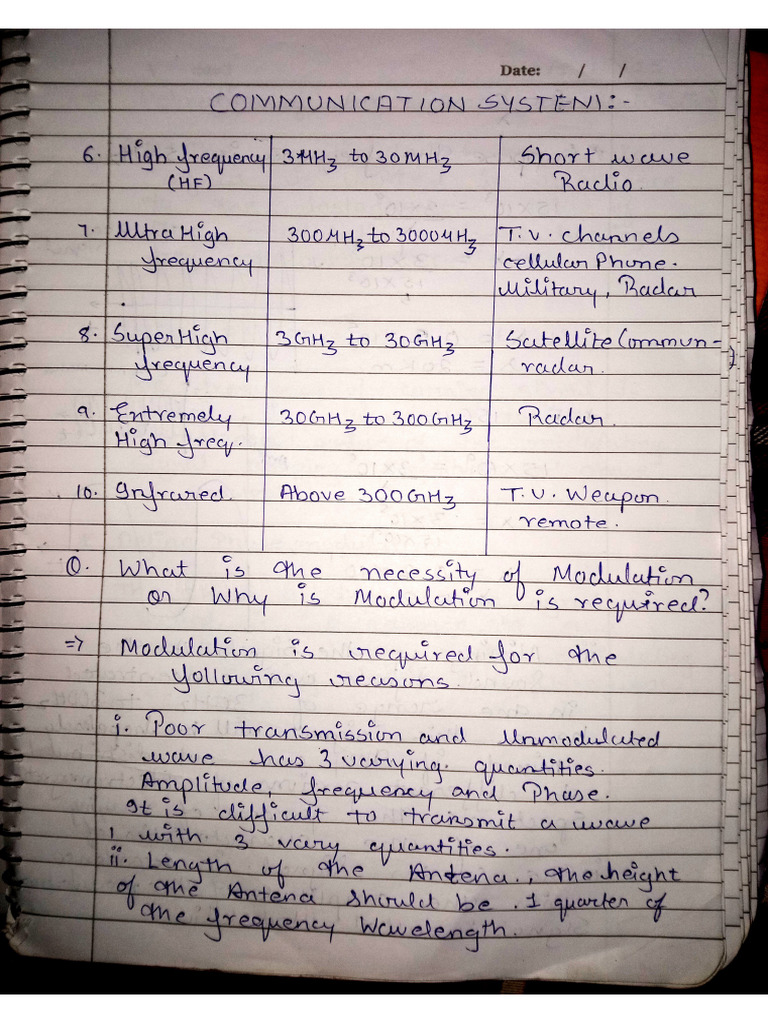 Date: / /
COMMUNICATION SYSTEM:-
6. High frequency 3MHz to 30MHz Short wave
(HF) Radio.
7. Ultra High 300MHz to 3000MHz T.V. channels
frequency cellular Phone.
Military, Radar
8. Super High 3GHz to 30GHz Satellite Commun-
frequency radar.
9. Extremely 30GHz to 300GHz Radar.
High freq.
10. Infrared. Above 300GHz T.V. Weapon.
remote.
Q. What is the necessity of Modulation
or Why is Modulation is required?
=> Modulation is required for the
following reasons.
i. Poor transmission and Unmodulated
wave has 3 varying quantities.
Amplitude, frequency and Phase.
It is difficult to transmit a wave
with 3 vary quantities.
ii. Length of the Antena, the height
of the Antena should be . 1 quarter of
the frequency Wavelength.